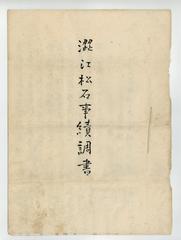 澀江松石事績調書